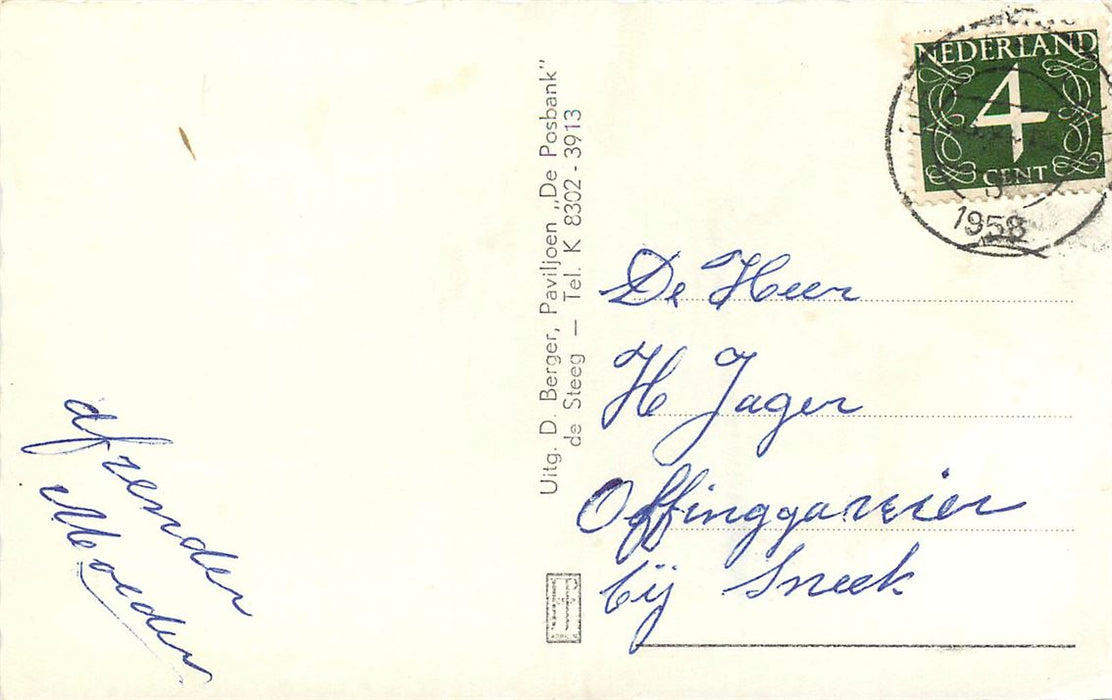 afzender
Moeder
Uitg. D. Berger, Paviljoen „De Posbank”
de Steeg — Tel. K 8302 - 3913
NEDERLAND
4
CENT
1958
De Heer
H Jager
Offinggawier
bij Sneek